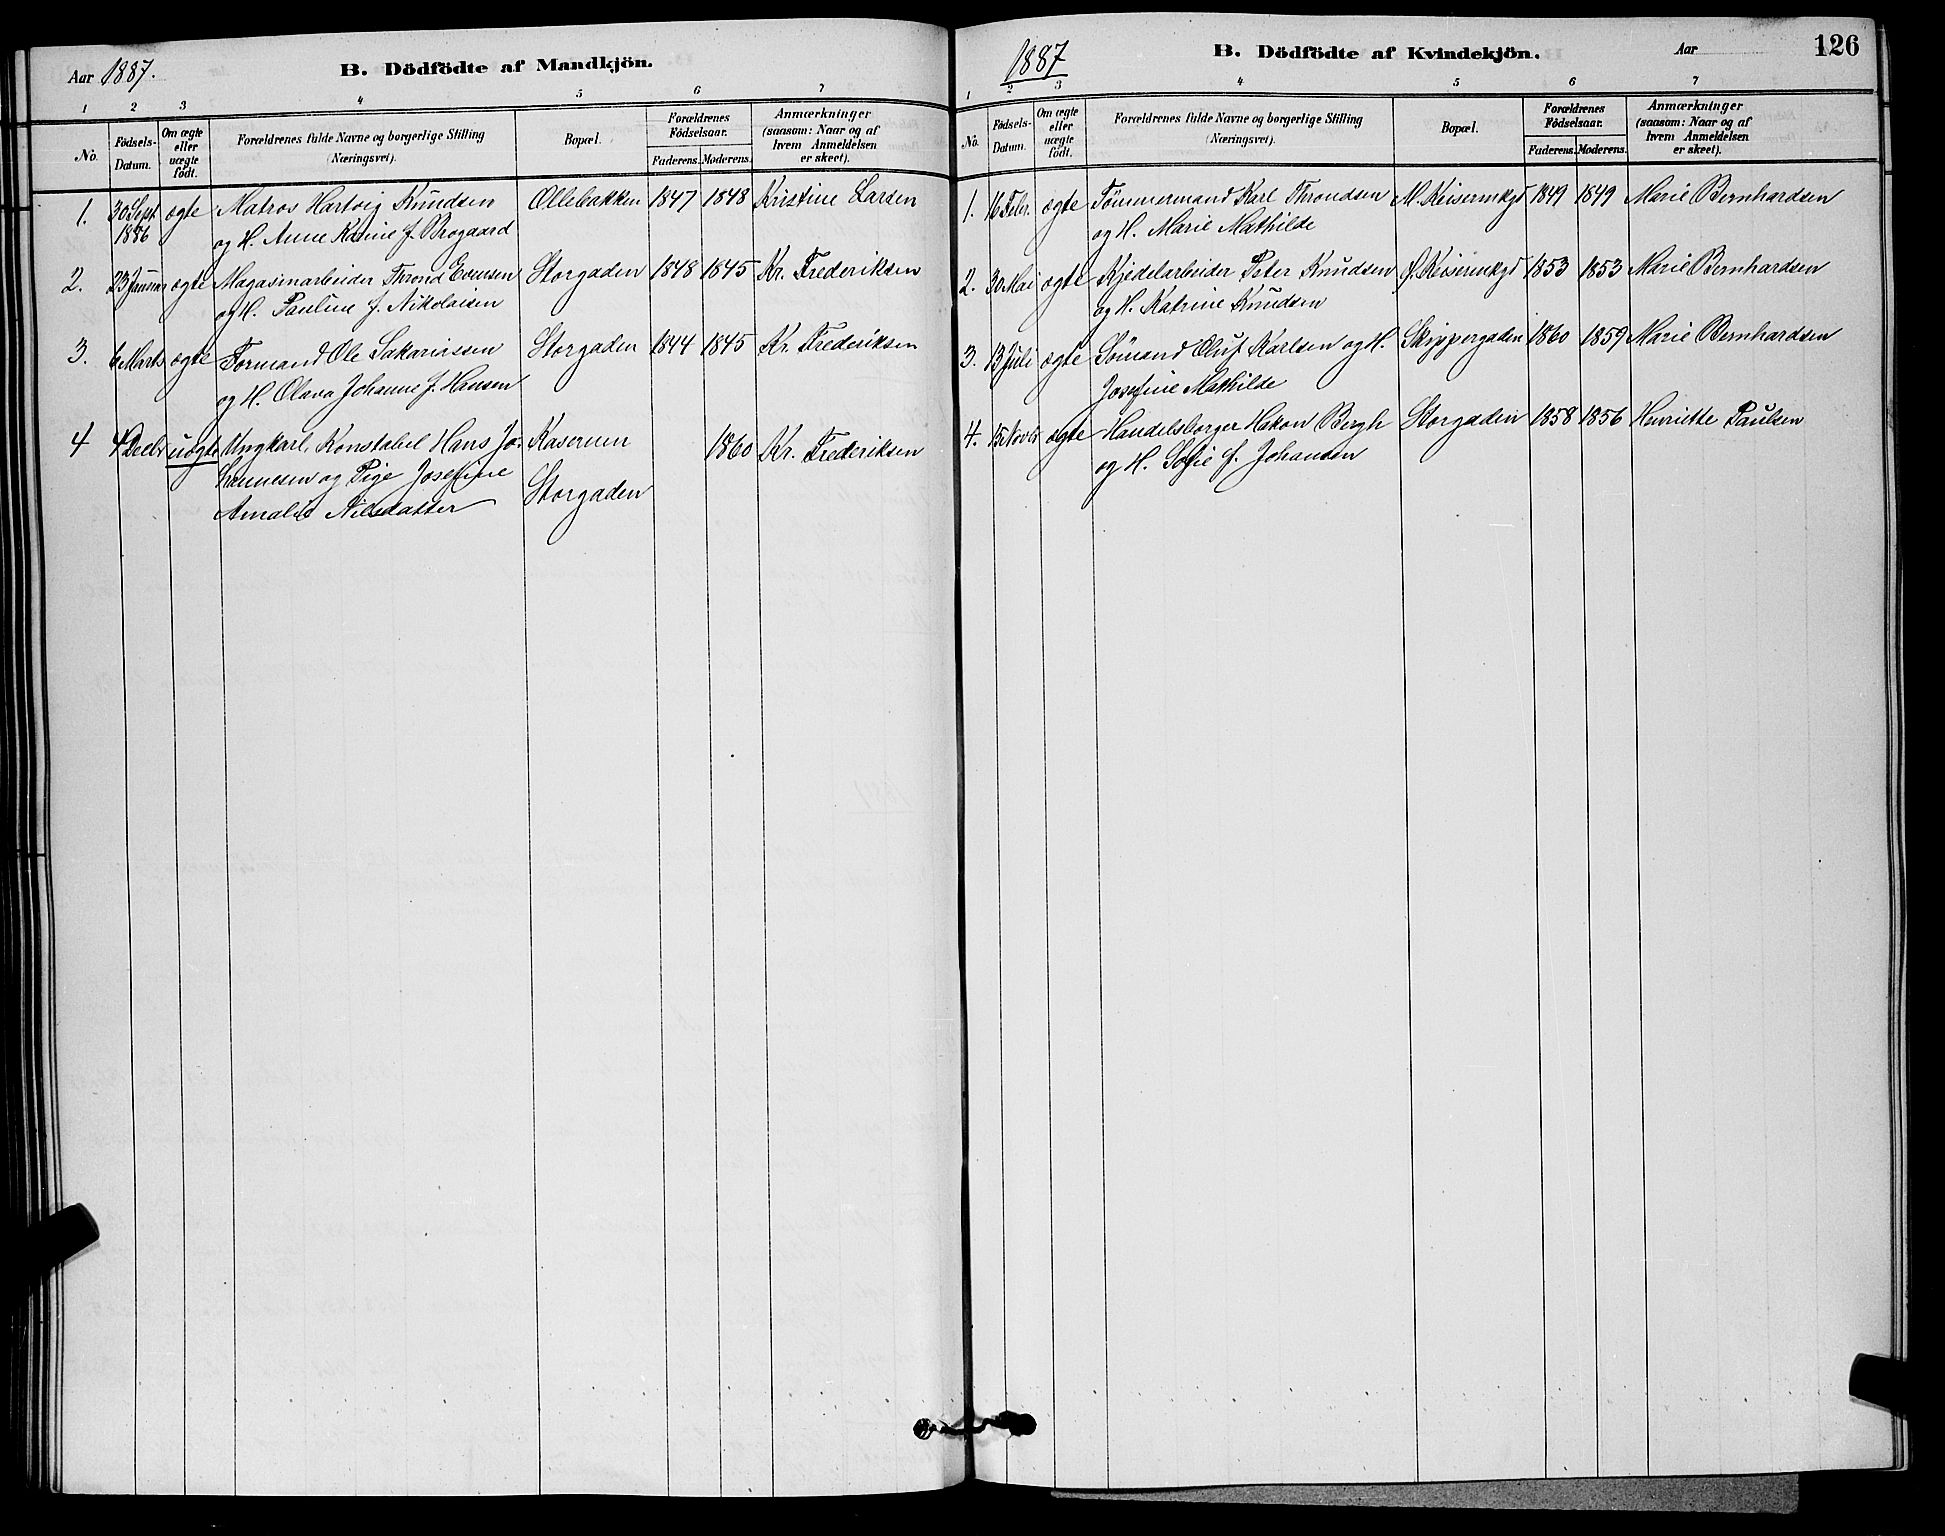 Aar 1887.
B. Dödfödte af Mandkjön.
1 2 3 4 5 6 7
No.
Födsels-Datum.
Om ægte eller uægte födt.
Forældrenes fulde Navne og borgerlige Stilling
(Næringsvei).
Bopæl.
Forældrenes Födselsaar.
Faderens. Moderens.
Anmærkninger
(saasom: Naar og af
hvem Anmeldelsen
er skeet).
1. 30 Sept. ægte Matros Hartvig Knudsen Ollebakken 1847 1848 Kristine Larsen
1886 og H. Anne Karine f. Brogaard
2. 23 Januar ægte Magasinarbeider Thrond Evensen Storgaden 1848 1845 Kr. Frederiksen
og H. Pauline f. Nikolaisen
3. 6 Marts ægte Formand Ole Sakariassen Storgaden 1844 1845 Kr. Frederiksen
og H. Olava Johanne f. Hansen
4 4 Decbr uægte Ungkarl, Konstabel Hans Jo- Kasernen 1860 Kr. Frederiksen
hannesen og Pige Josefine Storgaden
Amalie Nilsdatter
1887
B. Dödfödte af Kvindekjön.
Aar
126
1 2 3 4 5 6 7
No.
Födsels-Datum.
Om ægte eller uægte födt.
Forældrenes fulde Navne og borgerlige Stilling
(Næringsvei).
Bopæl.
Forældrenes Födselsaar.
Faderens. Moderens.
Anmærkninger
(saasom: Naar og af
hvem Anmeldelsen
er skeet).
1. 16 Febr. ægte Tömmermand Karl Throndsen M. Keisermkgd 1849 1849 Marie Bernhardsen
og H. Marie Mathilde
2. 30 Mai ægte Kjedelarbeider Peter Knudsen Ø. Keisermkgd 1853 1853 Marie Bernhardsen
og H. Katrine Knudsen
3. 13 Juli ægte Sömand Oluf Karlsen og H. Skippergaden 1860 1859 Marie Bernhardsen
Josefine Mathilde
4. 15 Novbr ægte Handelsborger Hakon Bergh Storgaden 1858 1856 Henriette Paulsen
og H. Sofie f. Johansen